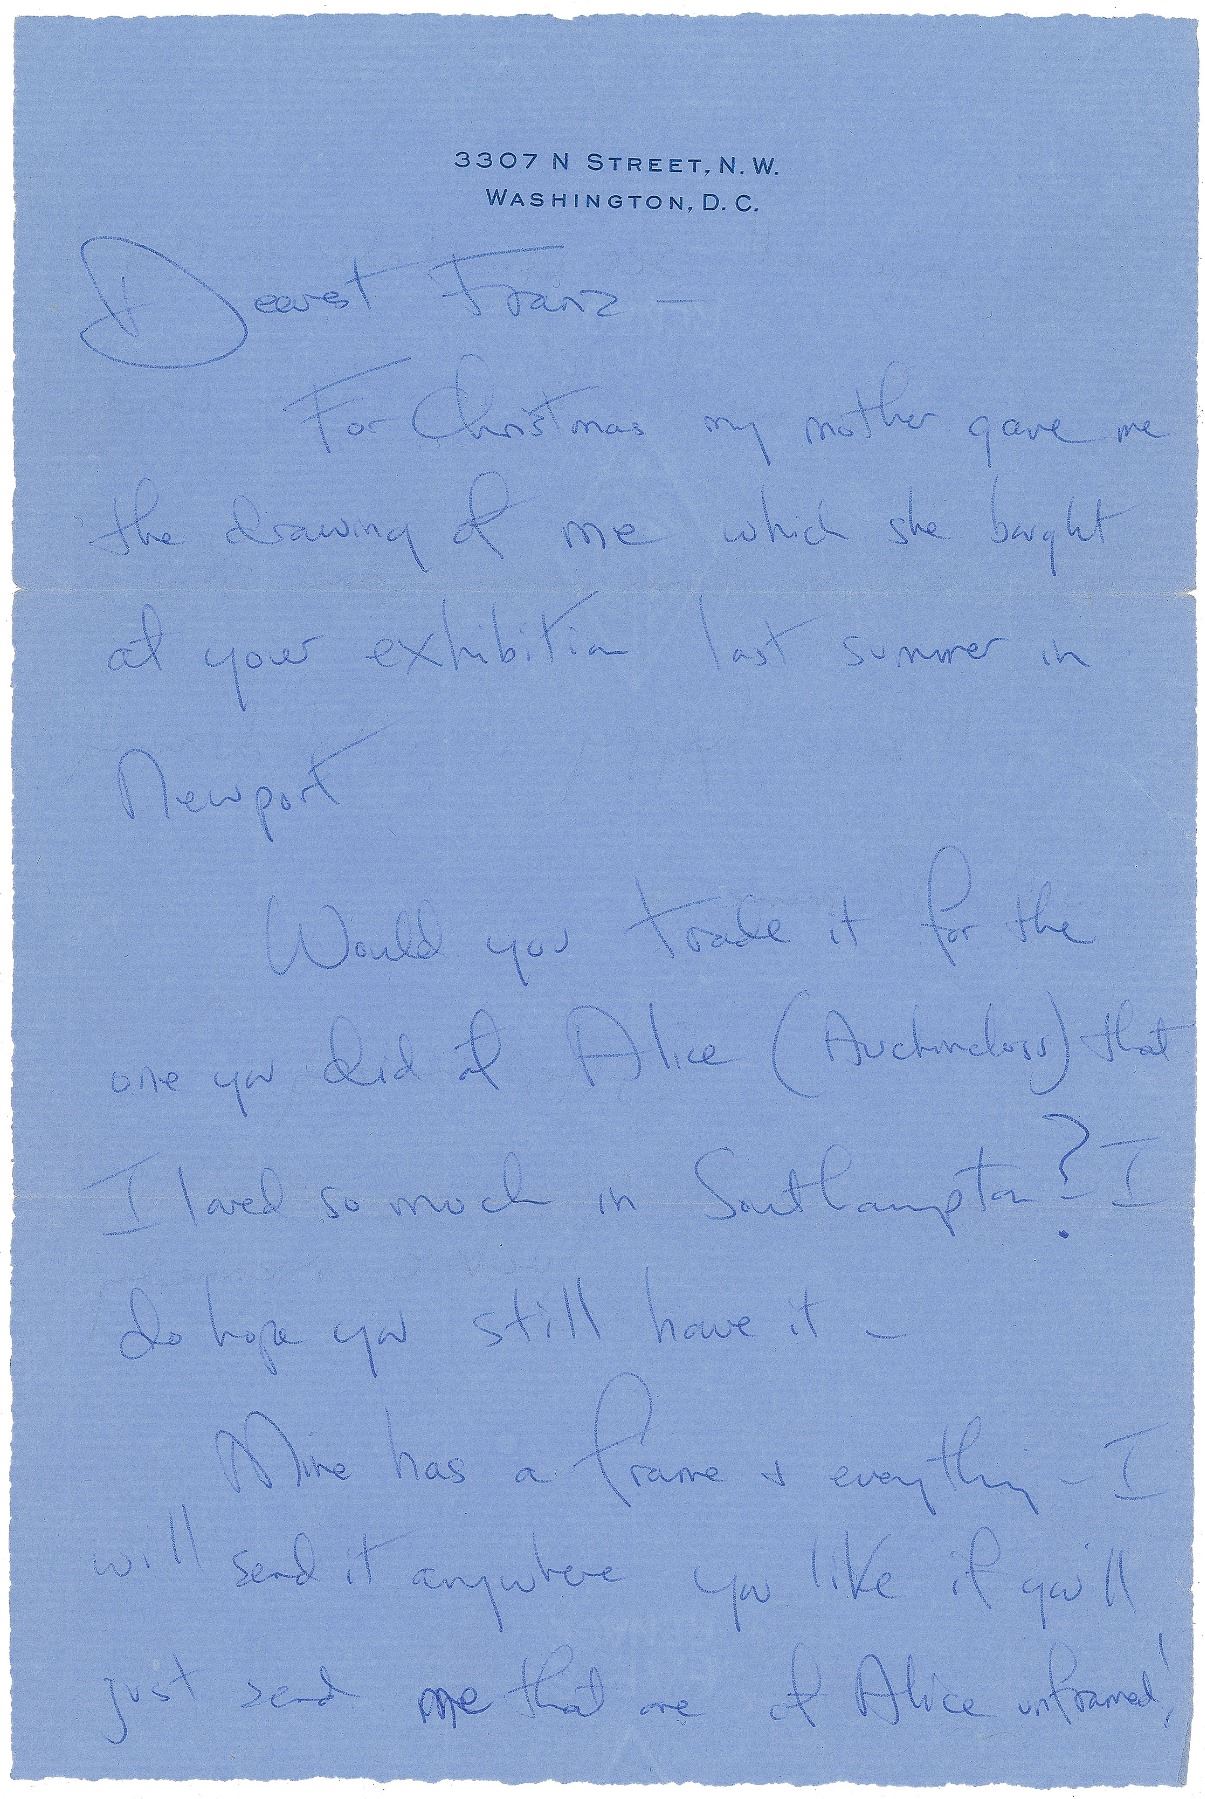 3307 N STREET, N.W.
WASHINGTON, D.C.
Dearest Franz —
For Christmas my mother gave me
the drawing of me which she bought
at your exhibition last summer in
Newport
Would you trade it for the
one you did of Alice (Auchincloss) that
I loved so much in Southampton? I
do hope you still have it –
Mine has a frame & everything – I
will send it anywhere you like if you'll
just send me that one of Alice unframed!